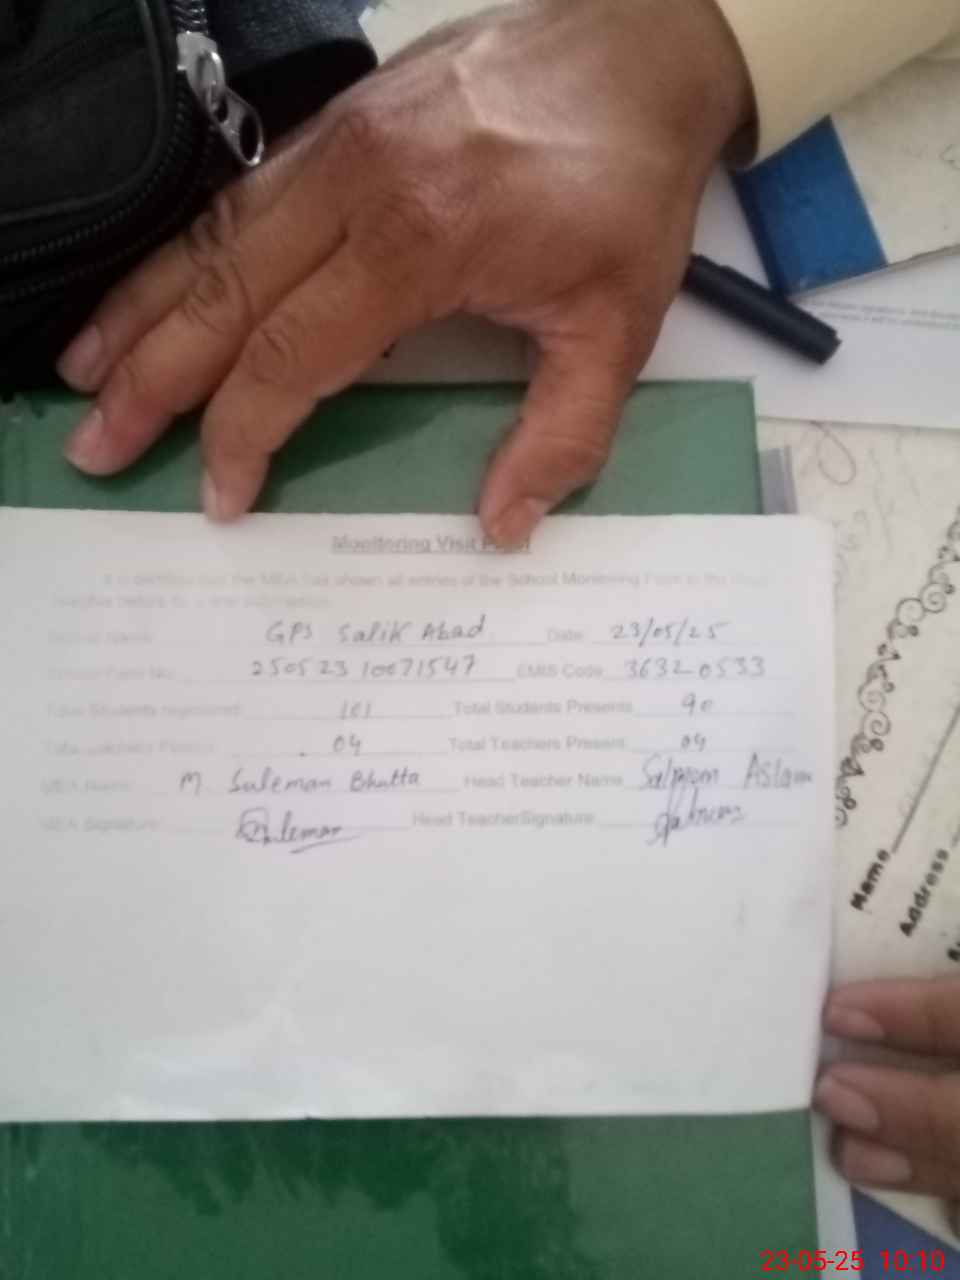 Monitoring Visit
It is certified that the MEA has shown all entries of the School Monitoring Form to the Head
teacher before its
School Name GPS Salik Abad Date 23/05/25
250523 10071547 EMIS Code 36320533
Total Students registered 101 Total Students Presents 90
Total 04 Total Teachers Present 04
MEA Name M. Suleman Bhutta Head Teacher Name Aslam
MEA Signature Suleman Head TeacherSignature
Name
Address
23-05-25 10:10